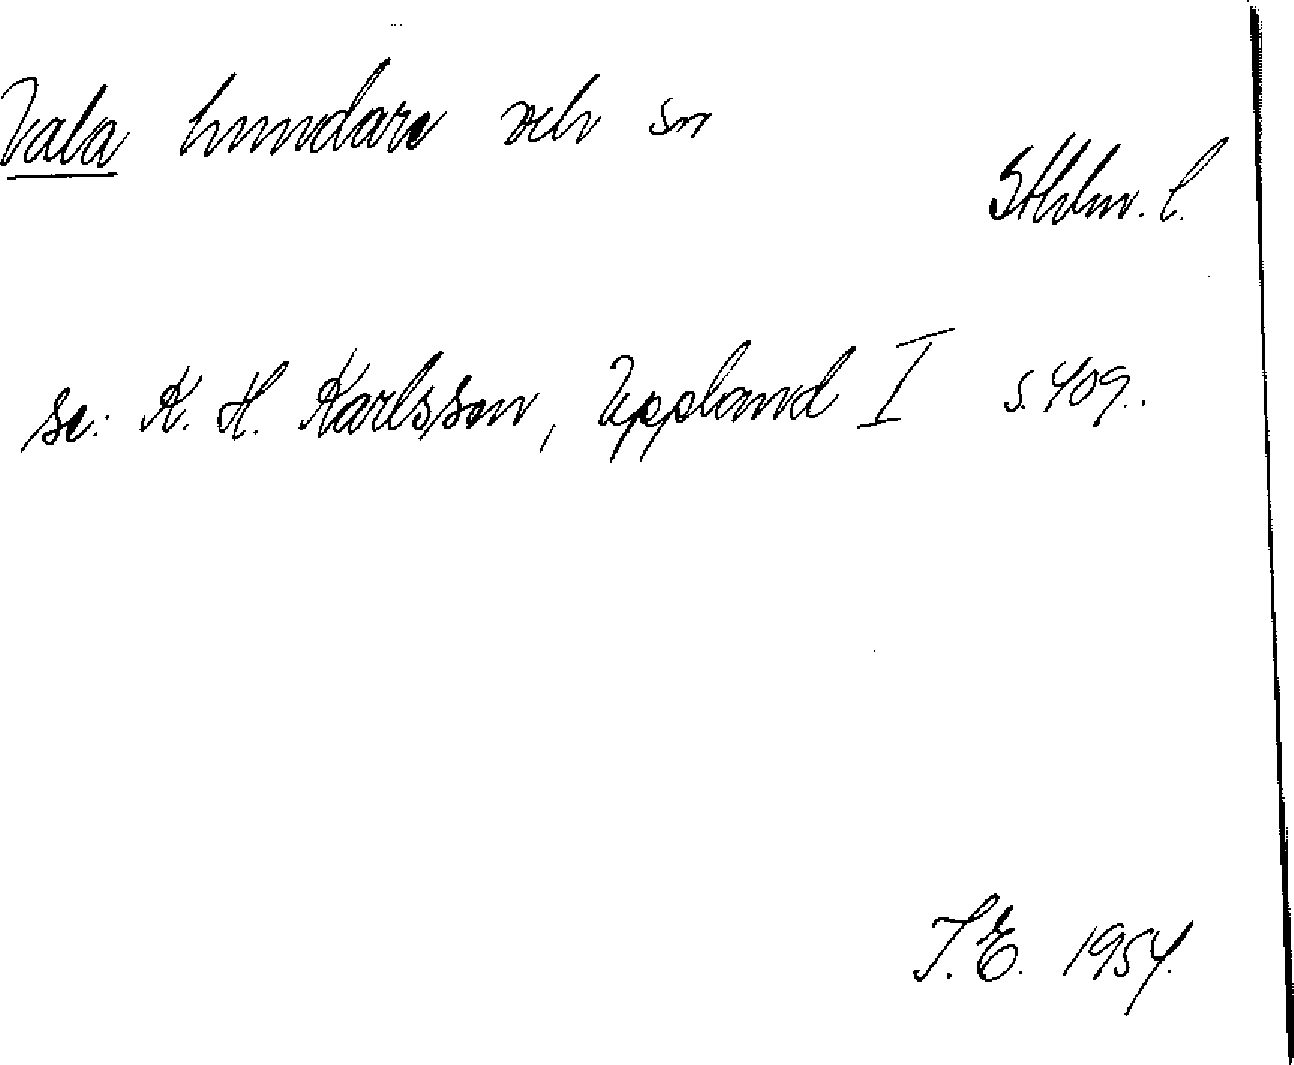 Vala hundare och sn
Sthlm. l.
se: K. H. Karlsson, Uppland I s. 409.
T.E. 1954.